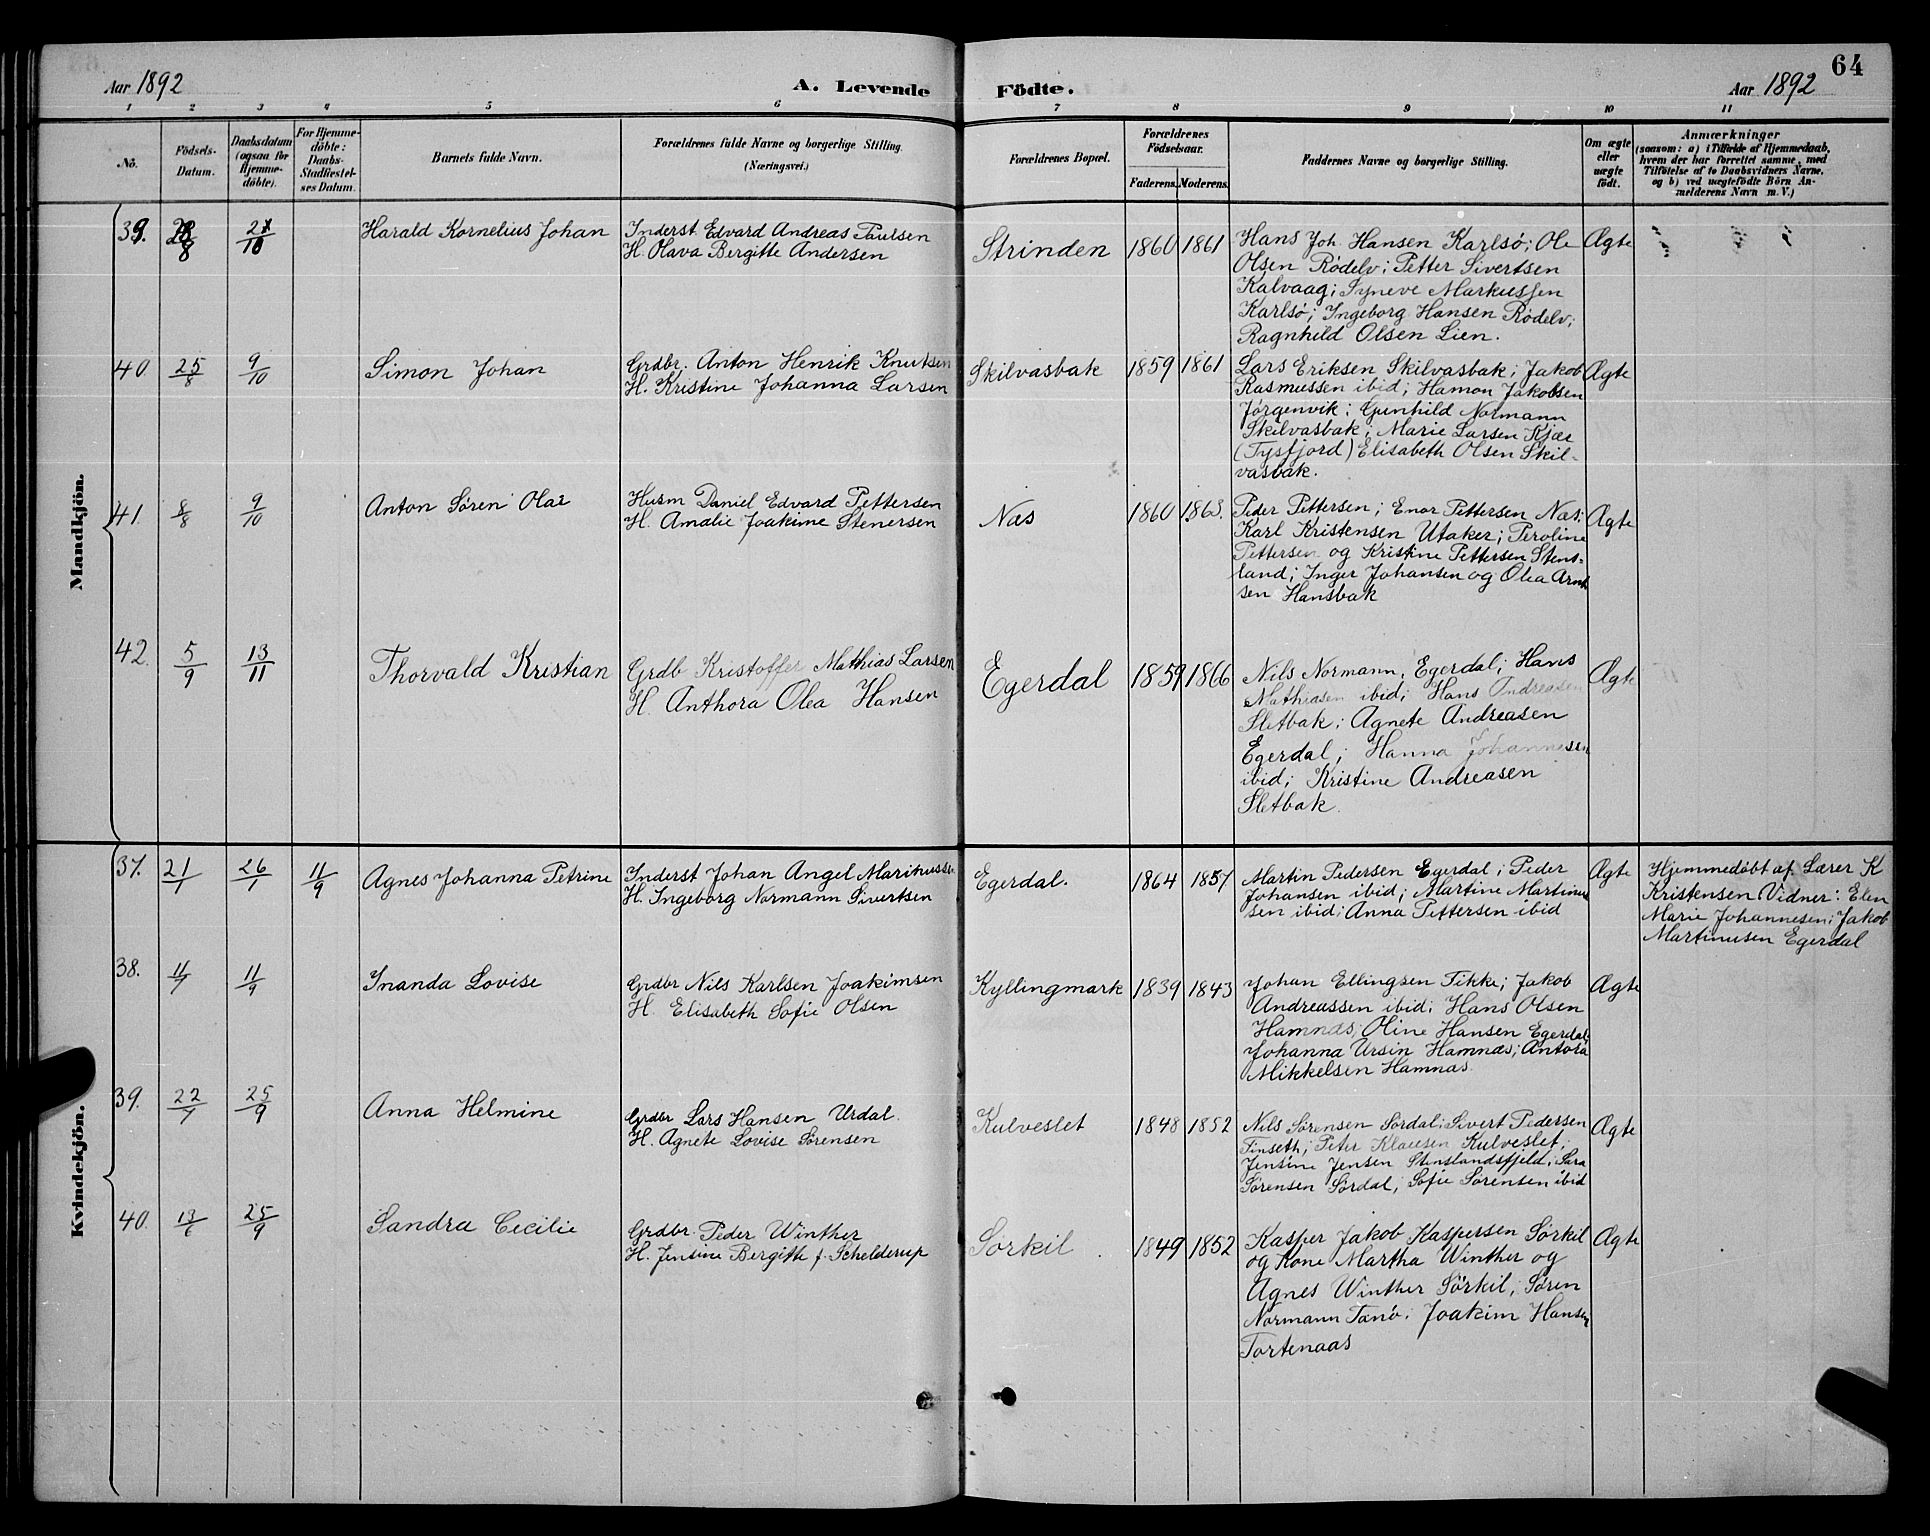 64
Aar 1892
A. Levende
Fødte.
Aar 1892
1 2 3 4 5 6 7 8 9 10 11
No.
Fødsels-
Datum.
Daabsdatum
(ogsaa for
Hjemme-
døbte).
For Hjemme-
døbte:
Daabs-
Stadfæstel-
ses Datum.
Barnets fulde Navn.
Forældrenes fulde Navne og borgerlige Stilling.
(Næringsvei.)
Forældrenes Bopæl.
Forældrenes
Fødselsaar.
Faderens. Moderens.
Faddernes Navne og borgerlige Stilling.
Om ægte
eller
uægte
født.
Anmærkninger
(saasom: a) i Tilfælde af Hjemmedaab,
hvem der har forrettet samme, med
Tilføielse af to Daabsvidners Navne,
og b) ved uægtefødte Børn An-
melderens Navn m. V.)
Mandkjøn.
39.
8
10
Harald Kornelius Johan
Inderst Edvard Andreas Paulsen
H. Olava Bergitte Andersen
Strinden
1860 1861
Hans Joh. Hansen Karlsø; Ole
Olsen Rødelv; Petter Sivertsen
Kalvaag; Syneve Markussen
Karlsø; Ingeborg Hansen Rødelv;
Ragnhild Olsen Lien.
Ægte
40 25/8 9/10
Simon Johan
Grdbr. Anton Henrik Knutsen
H. Kristine Johanna Larsen
Skilvasbak
1859 1861
Lars Eriksen Skilvasbak; Jakob
Rasmussen ibid; Hamon Jakobsen
Jørgenvik; Gunhild Normann
Skilvasbak; Marie Larsen Kjær
(Tysfjord) Elisabeth Olsen Skil-
vasbak.
Ægte
41. 8/8 9/10
Anton Søren Olai
Husm Daniel Edvard Pettersen
H. Amalie Joakime Stenersen
Næs
1860 1863.
Peder Pettersen; Enor Pettersen Næs;
Karl Kristensen Utaker; Peroline
Pettersen og Kristine Pettersen Stens-
land; Inger Johansen og Olea Arnt-
sen Hansbak
Ægte
42. 5/9 13/11
Thorvald Kristian
Grdb Kristoffer Mathias Larsen
H. Anthora Olea Hansen
Egerdal
1859 1866
Nils Normann, Egerdal; Hans
Mathiasen ibid; Hans Andreasen
Sletbak; Agnete Andreasen
Egerdal; Hanna Johannesen
ibid; Kristine Andreasen
Sletbak.
Ægte
Kvindekjøn.
37. 21/1 26/1 11/9
Agnes Johanna Petrine
Inderst Johan Angel Marihussen
H. Ingeborg Normann Sivertsen
Egerdal.
1864 1857
Martin Pedersen Egerdal; Peder
Johansen ibid; Martine Martinus
sen ibid; Anna Pettersen ibid
Ægte
Hjemmedøbt af Lærer K
Kristensen Vidner: Elen
Marie Johannesen; Jakob
Martinusen Egerdal
38. 11/7 11/9
Inanda Lovise
Grdbr Nils Karlsen Joakimsen
H. Elisabeth Sofie Olsen
Kyllingmark
1839 1843
Johan Ellingsen Tikke; Jakob
Andreassen ibid; Hans Olsen
Hamnæs; Oline Hansen Egerdal;
Johanna Ursin Hamnæs; Antora
Mikkelsen Hamnæs.
Ægte
39. 22/7 25/9
Anna Helmine
Grdbr Lars Hansen Urdal.
H. Agnete Lovise Sørensen
Kulveslet
1848 1852
Nils Sørensen Sørdal; Sivert Pedersen
Finseth; Peter Klausen Kulveslet;
Jensine Jensen Stenslandsfjeld; Sara
Sørensen Sørdal; Sofie Sørensen ibid
Ægte
40. 13/6 25/9
Sandra Cecilie
Grdbr. Peder Winther
H. Jensine Bergitte f. Schelderup
Sørkil
1849 1852
Kasper Jakob Kaspersen Sørkil
og Kone Martha Winther og
Agnes Winther Sørkil; Søren
Normann Tanø; Joakim Hansen
Tortenaas
Ægte